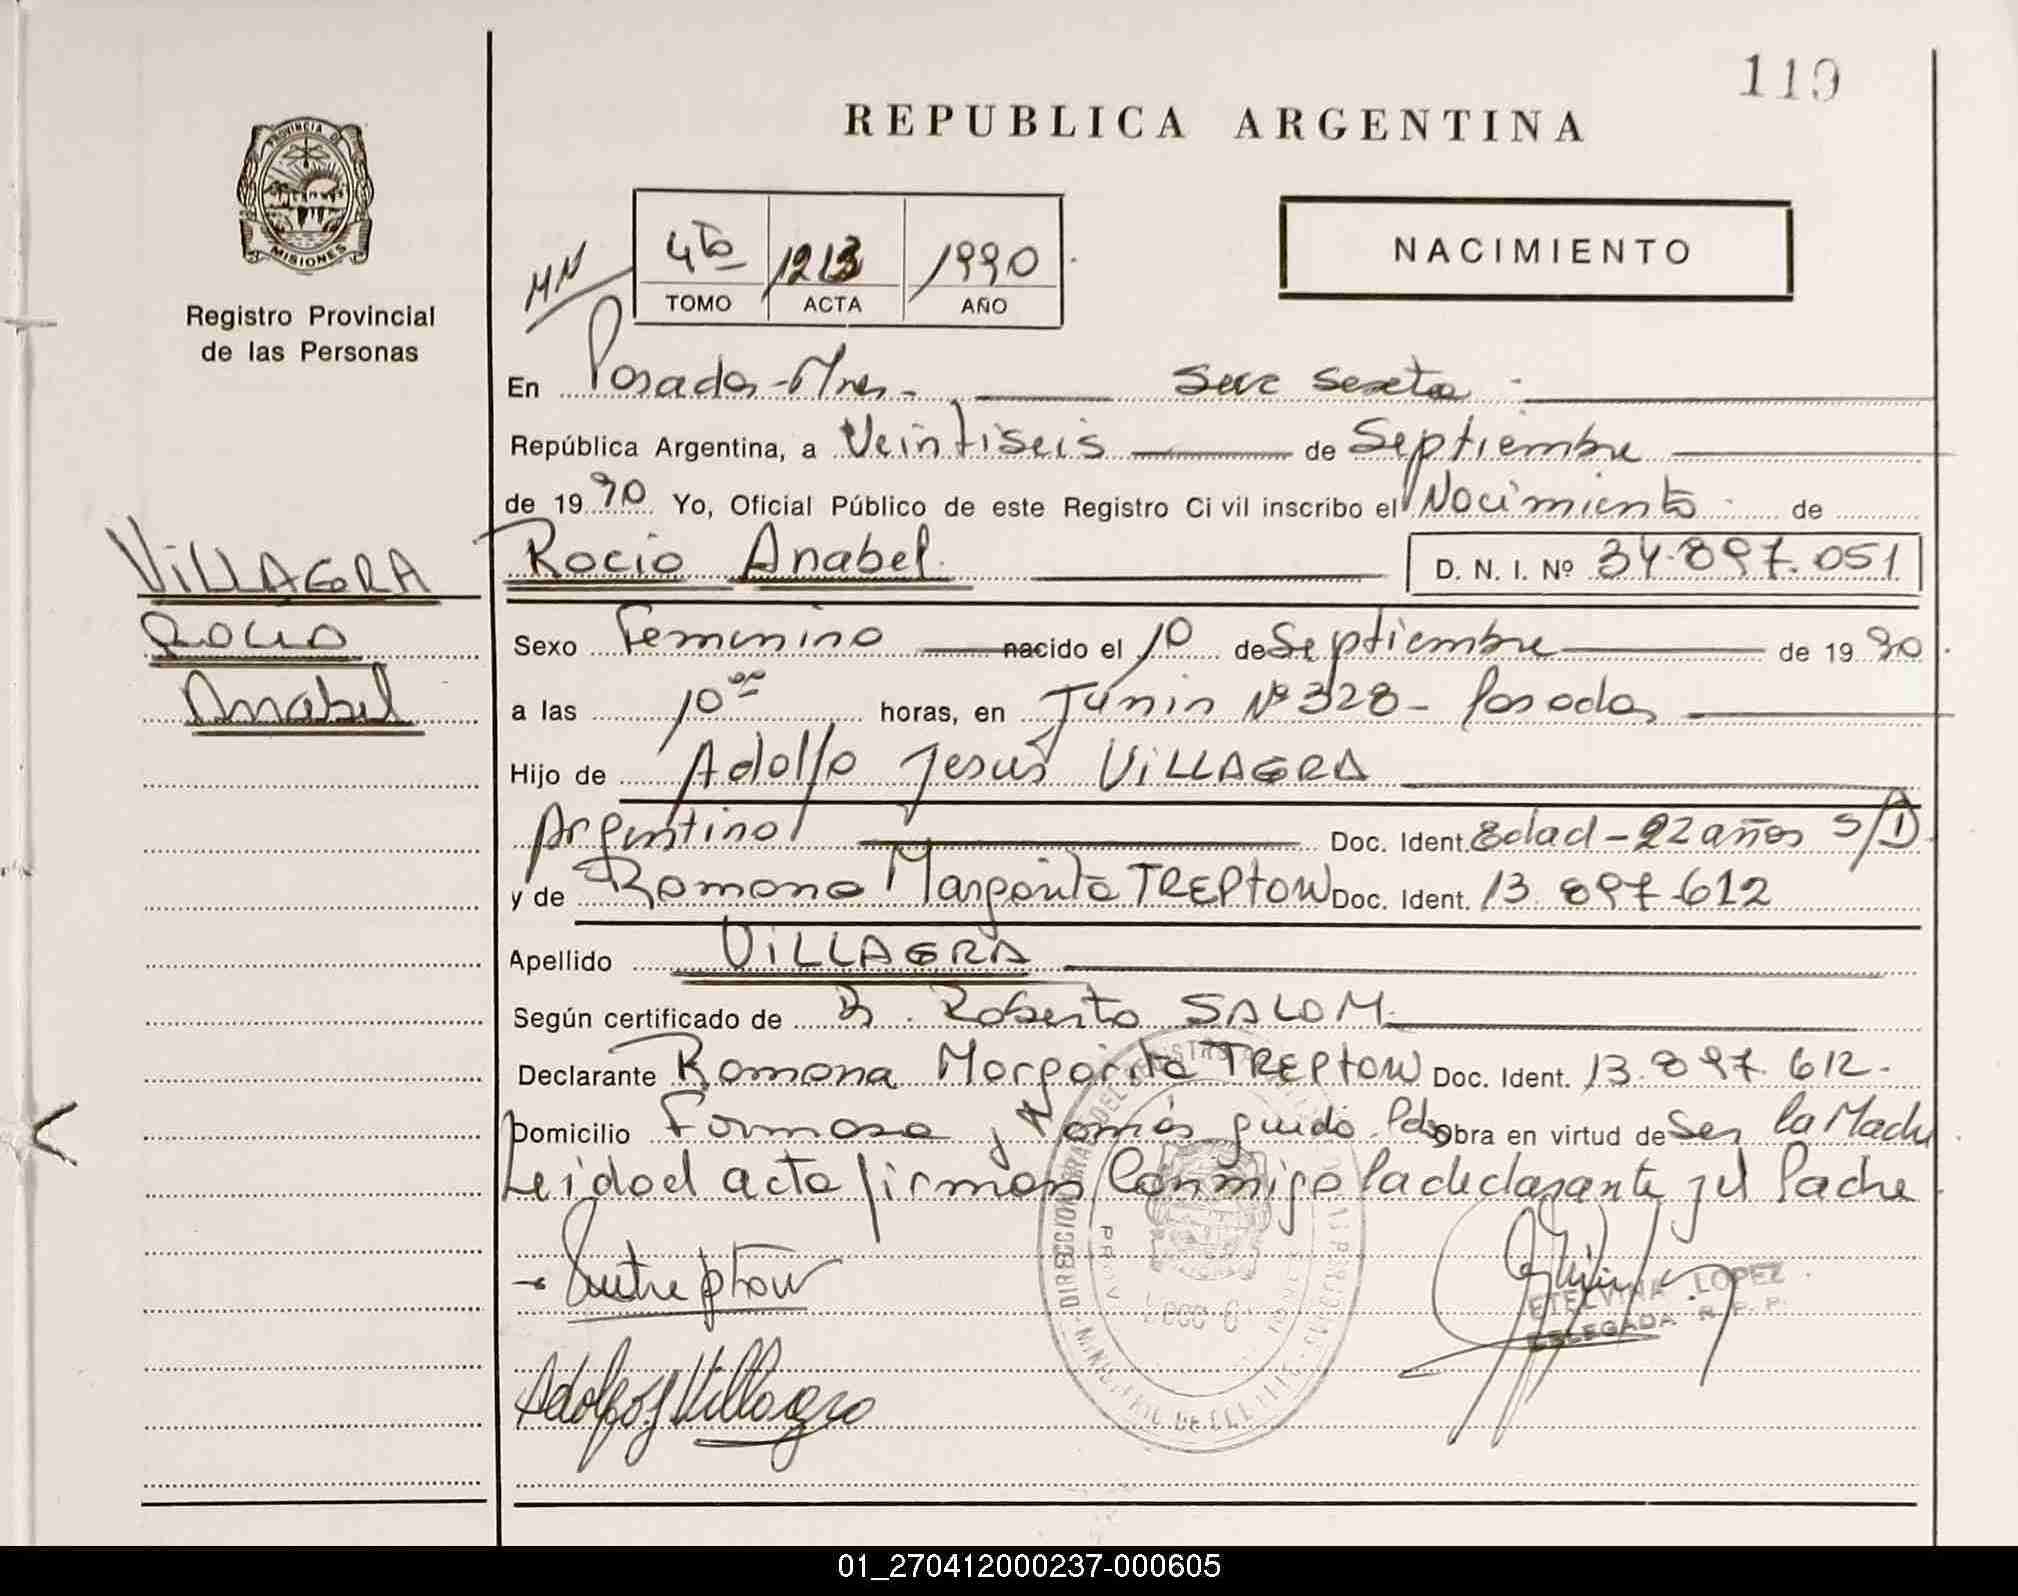 119
REPUBLICA ARGENTINA
PROVINCIA DE
MISIONES
Registro Provincial
de las Personas
NACIMIENTO
4to 1213 1990
TOMO ACTA AÑO
En Posadas - Mnes. Secc Sexta
República Argentina, a Veintiseis de Septiembre
de 1990 Yo, Oficial Público de este Registro Ci vil inscribo el Nacimiento de
VILLAGRA
Rocio
Anabel
Rocio Anabel D. N. I. Nº 34.897.051
Sexo Femenino nacido el 10 de Septiembre de 1990
a las 10 00 horas, en Junin Nº 328 - Posadas
Hijo de Adolfo Jesús VILLAGRA
Argentino Doc. Ident. Edad - 22 años S/D
y de Ramona Margarita TREPTOW Doc. Ident. 13.897.612
Apellido VILLAGRA
Según certificado de Dr. Roberto SALOM
Declarante Ramona Margarita TREPTOW Doc. Ident. 13.897.612.
Domicilio Formosa y Tomás guido. Pdas Obra en virtud de Ser la Madre
Leida el acta firman conmigo la declarante y el Padre
ETELVINA LOPEZ
DELEGADA R. P. P.
Adolfo J Villagra
01_270412000237-000605